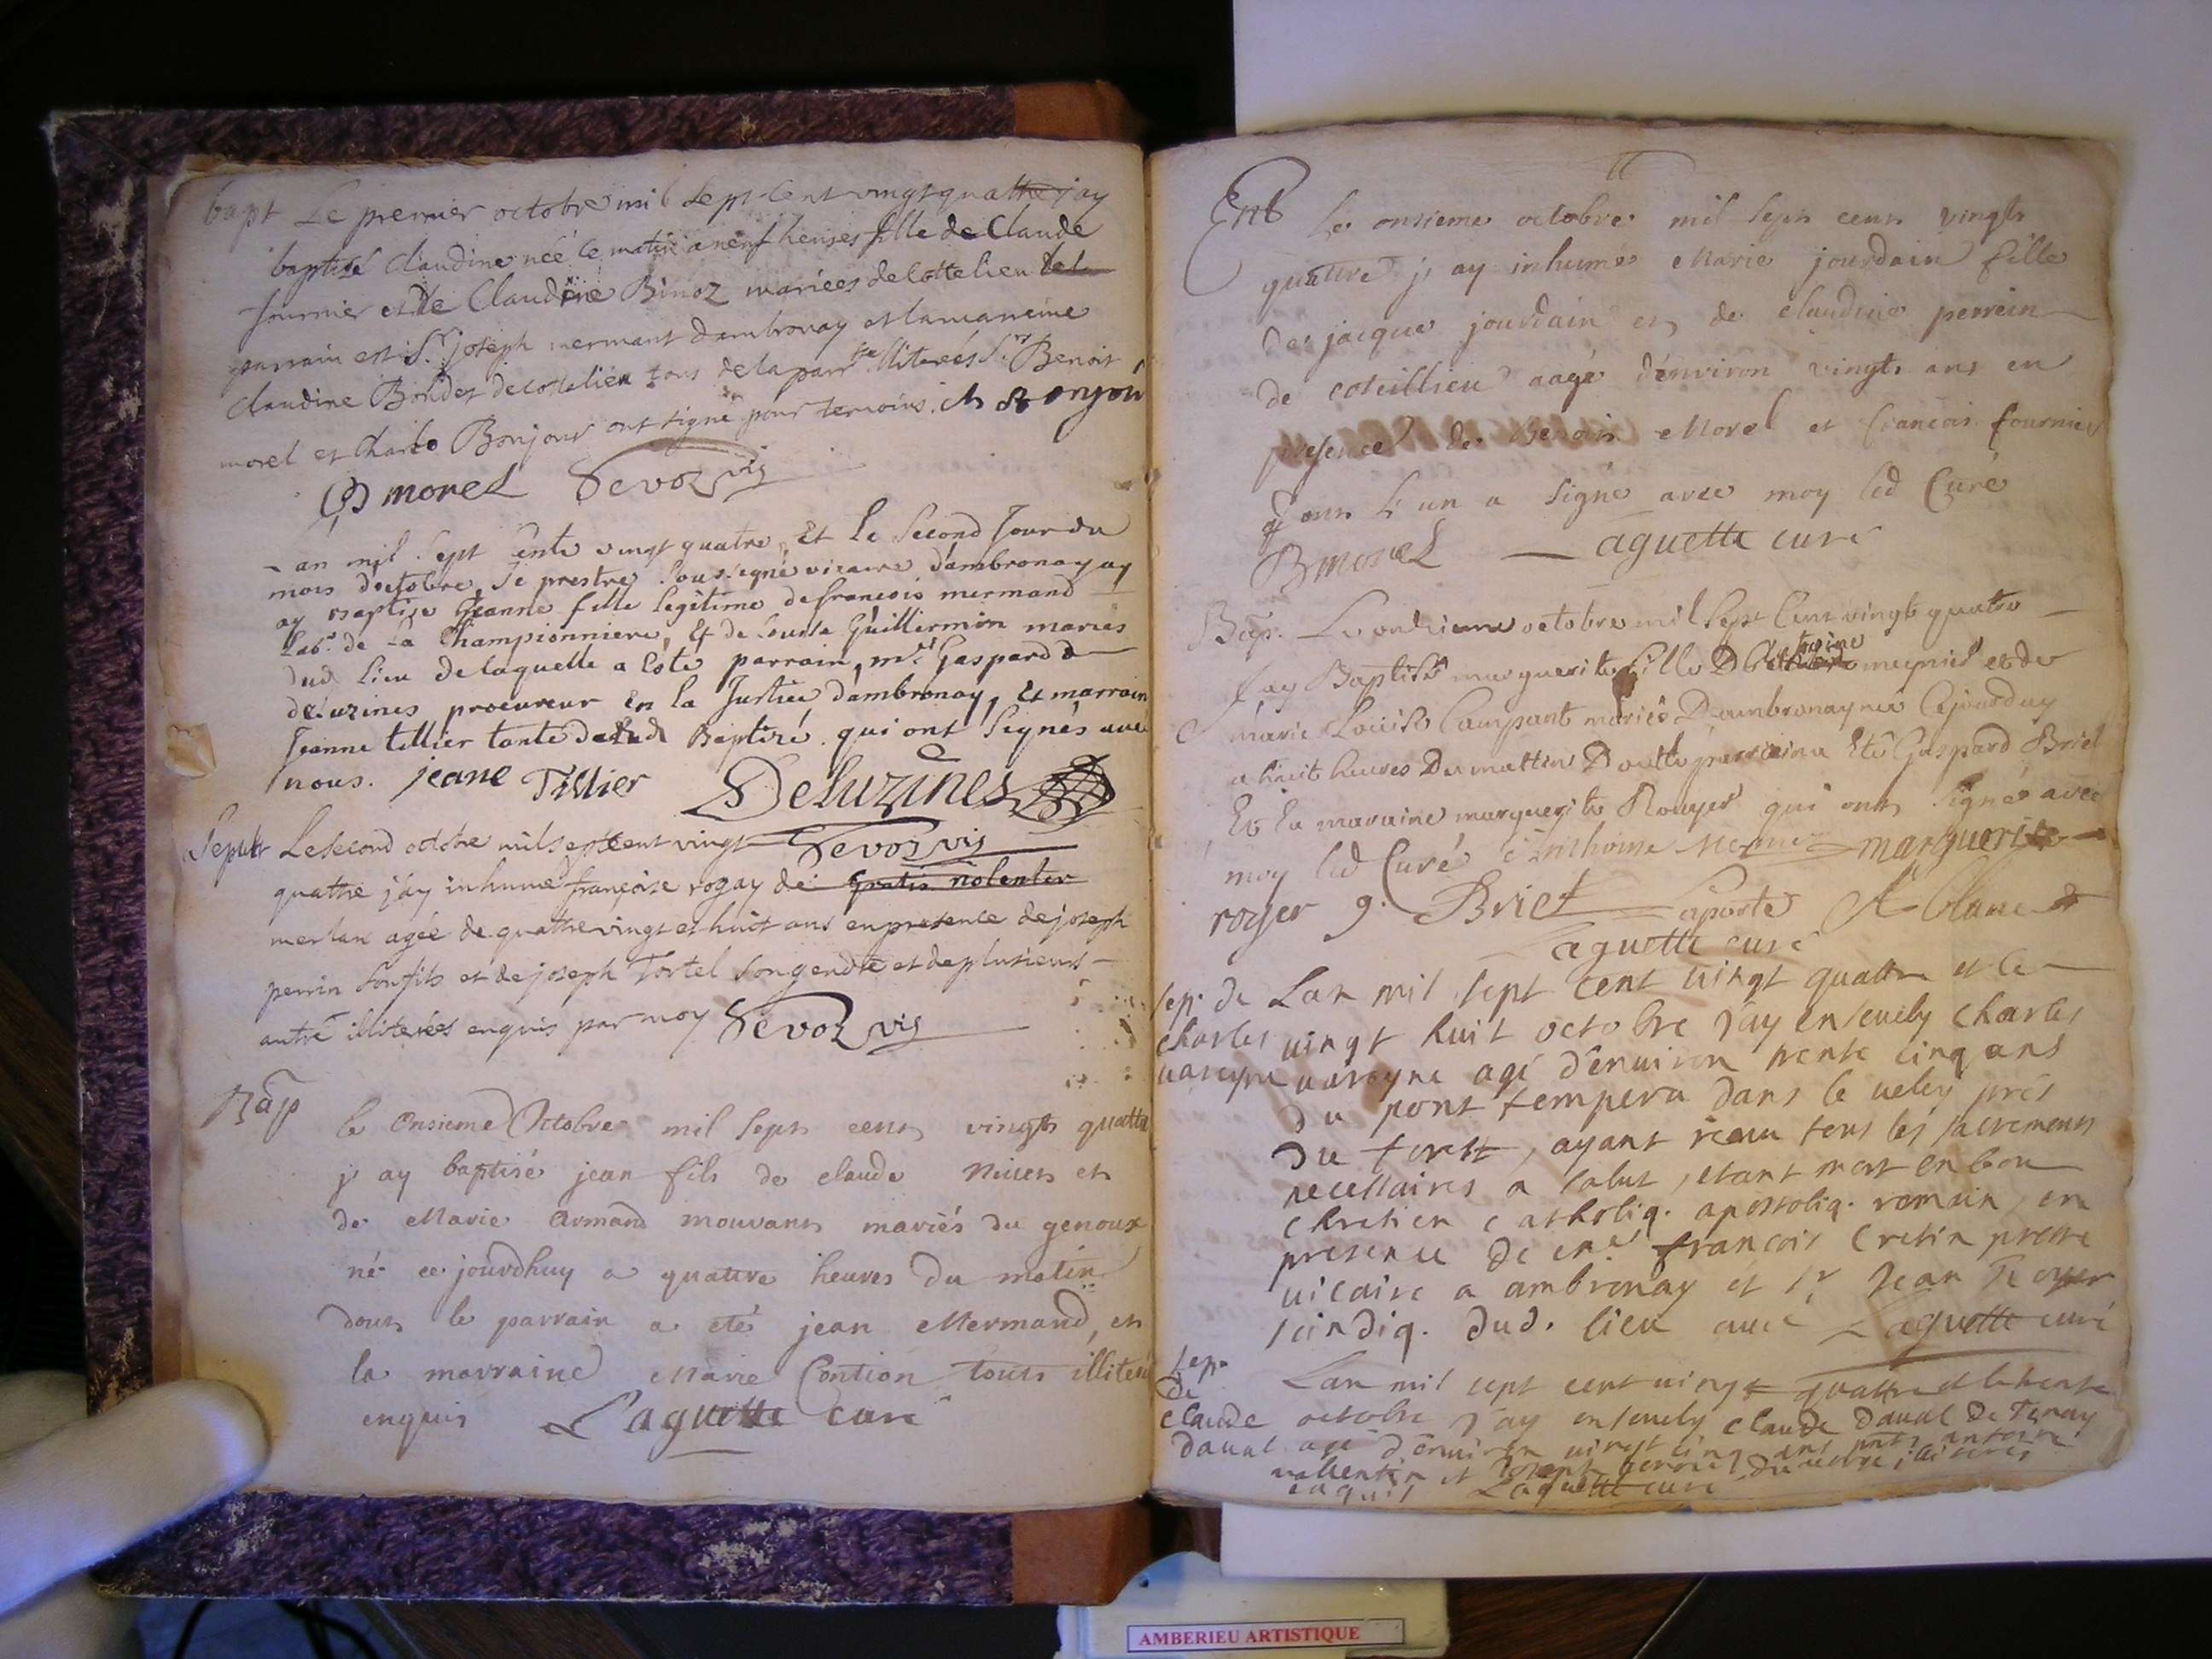 bapt Le premier octobre mil sept cent vingt quattre jay
baptisé Claudine née ce matin a neuf heures fille de Claude
fournier et de Claudine Binoz mariées de cottelieu
parrain est Sr. joseph mermant dambronay et la maraine
claudine Bondet de cottelieu tous de la parr illiterés Sr. Benoit
morel et Charle Bonjour ont signé pour temoins. ch Bonjou
B morel Devoz vic
an mil sept cents vingt quatre, Et le second Jour du
mois doctobre, Je prestre soussigné vicaire dambronay ay
ay Baptise Jeanne fille legitime de francois mermand
Lab. de La Championniere, Et de Louise Guillermin mariés
dud Lieu de laquelle a esté parrain, mr. Gaspard
deluzines procureur en la Justice dambronay, Et marrain
Jeanne tillier tante Baptizé. qui ont signés avec
nous. jeane Tillier Deluzines
Sepult Le second octobre mil sept cent vingt Devoz vic
quattre j'ay inhumé françoise rogay de
merlan agée de quattrevingt et huict ans en presence de joseph
perrin son fils et de joseph Tortel son gendre et de plusieurs
autre illiterées enquis par moy Devoz vic
Bap
le onsieme Octobre mil sept cent vingt quattre
j ay baptisé jean fils de claude et
de Marie Armand mouvant mariés du genoux
né ce jourdhuy a quatre heures du matin
dont le parrain a eté jean Mermand, et
la marraine Marie Contion touts illiteré
enquis Laguette curé
Ent Le onsieme octobre mil sept cent vingt
quattre j ay inhumée Marie jourdain fille
de jacque jourdain et de claudine perrein
de coteillieu aagé d'environ vingt ans en
presence de Benoit Morel et francois fournier
dont L un a signé avec moy led Curé
B morel Laguette curé
Bap. Le onzieme octobre mil sept cent vingt quatre
J ay Baptisé marguerite fille D Anthoine meynier et de
marie Louise Campant mariés Dambronay née Cejourduy
a huit heures Du mattin Dont le parrain a Eté Gaspard Briet
Et La maraine marguerite Royer qui ont signé avec
moy led Curé Anthoine marguerite
royer g. Briet Laporte
Laguette curé
sep. de Lan mil sept cent vingt quattre et le
charles vingt huit octobre j'ay ensevely charles
vareyne vareyne agé d'environ trente cinq ans
du pont tempera dans le veley prés
du forest, ayant receu tous les sacrements
necessaires a salut, etant mort en bon
chretien catholiq. apostoliq. romain, en
presence de francois Cretin prestre
vicaire a ambronay et Sr. Jean Royer
scindiq. dud. lieu avec Laguette curé
sep.
de Lan mil sept cent vingt quattre et le trente
claude octobre j'ay ensevely claude daval de Tenay
daval agé d'environ vingt cinq ans pnts antoine
vallentin et Joseph illiterés
enquis Laguette curé
AMBERIEU ARTISTIQUE